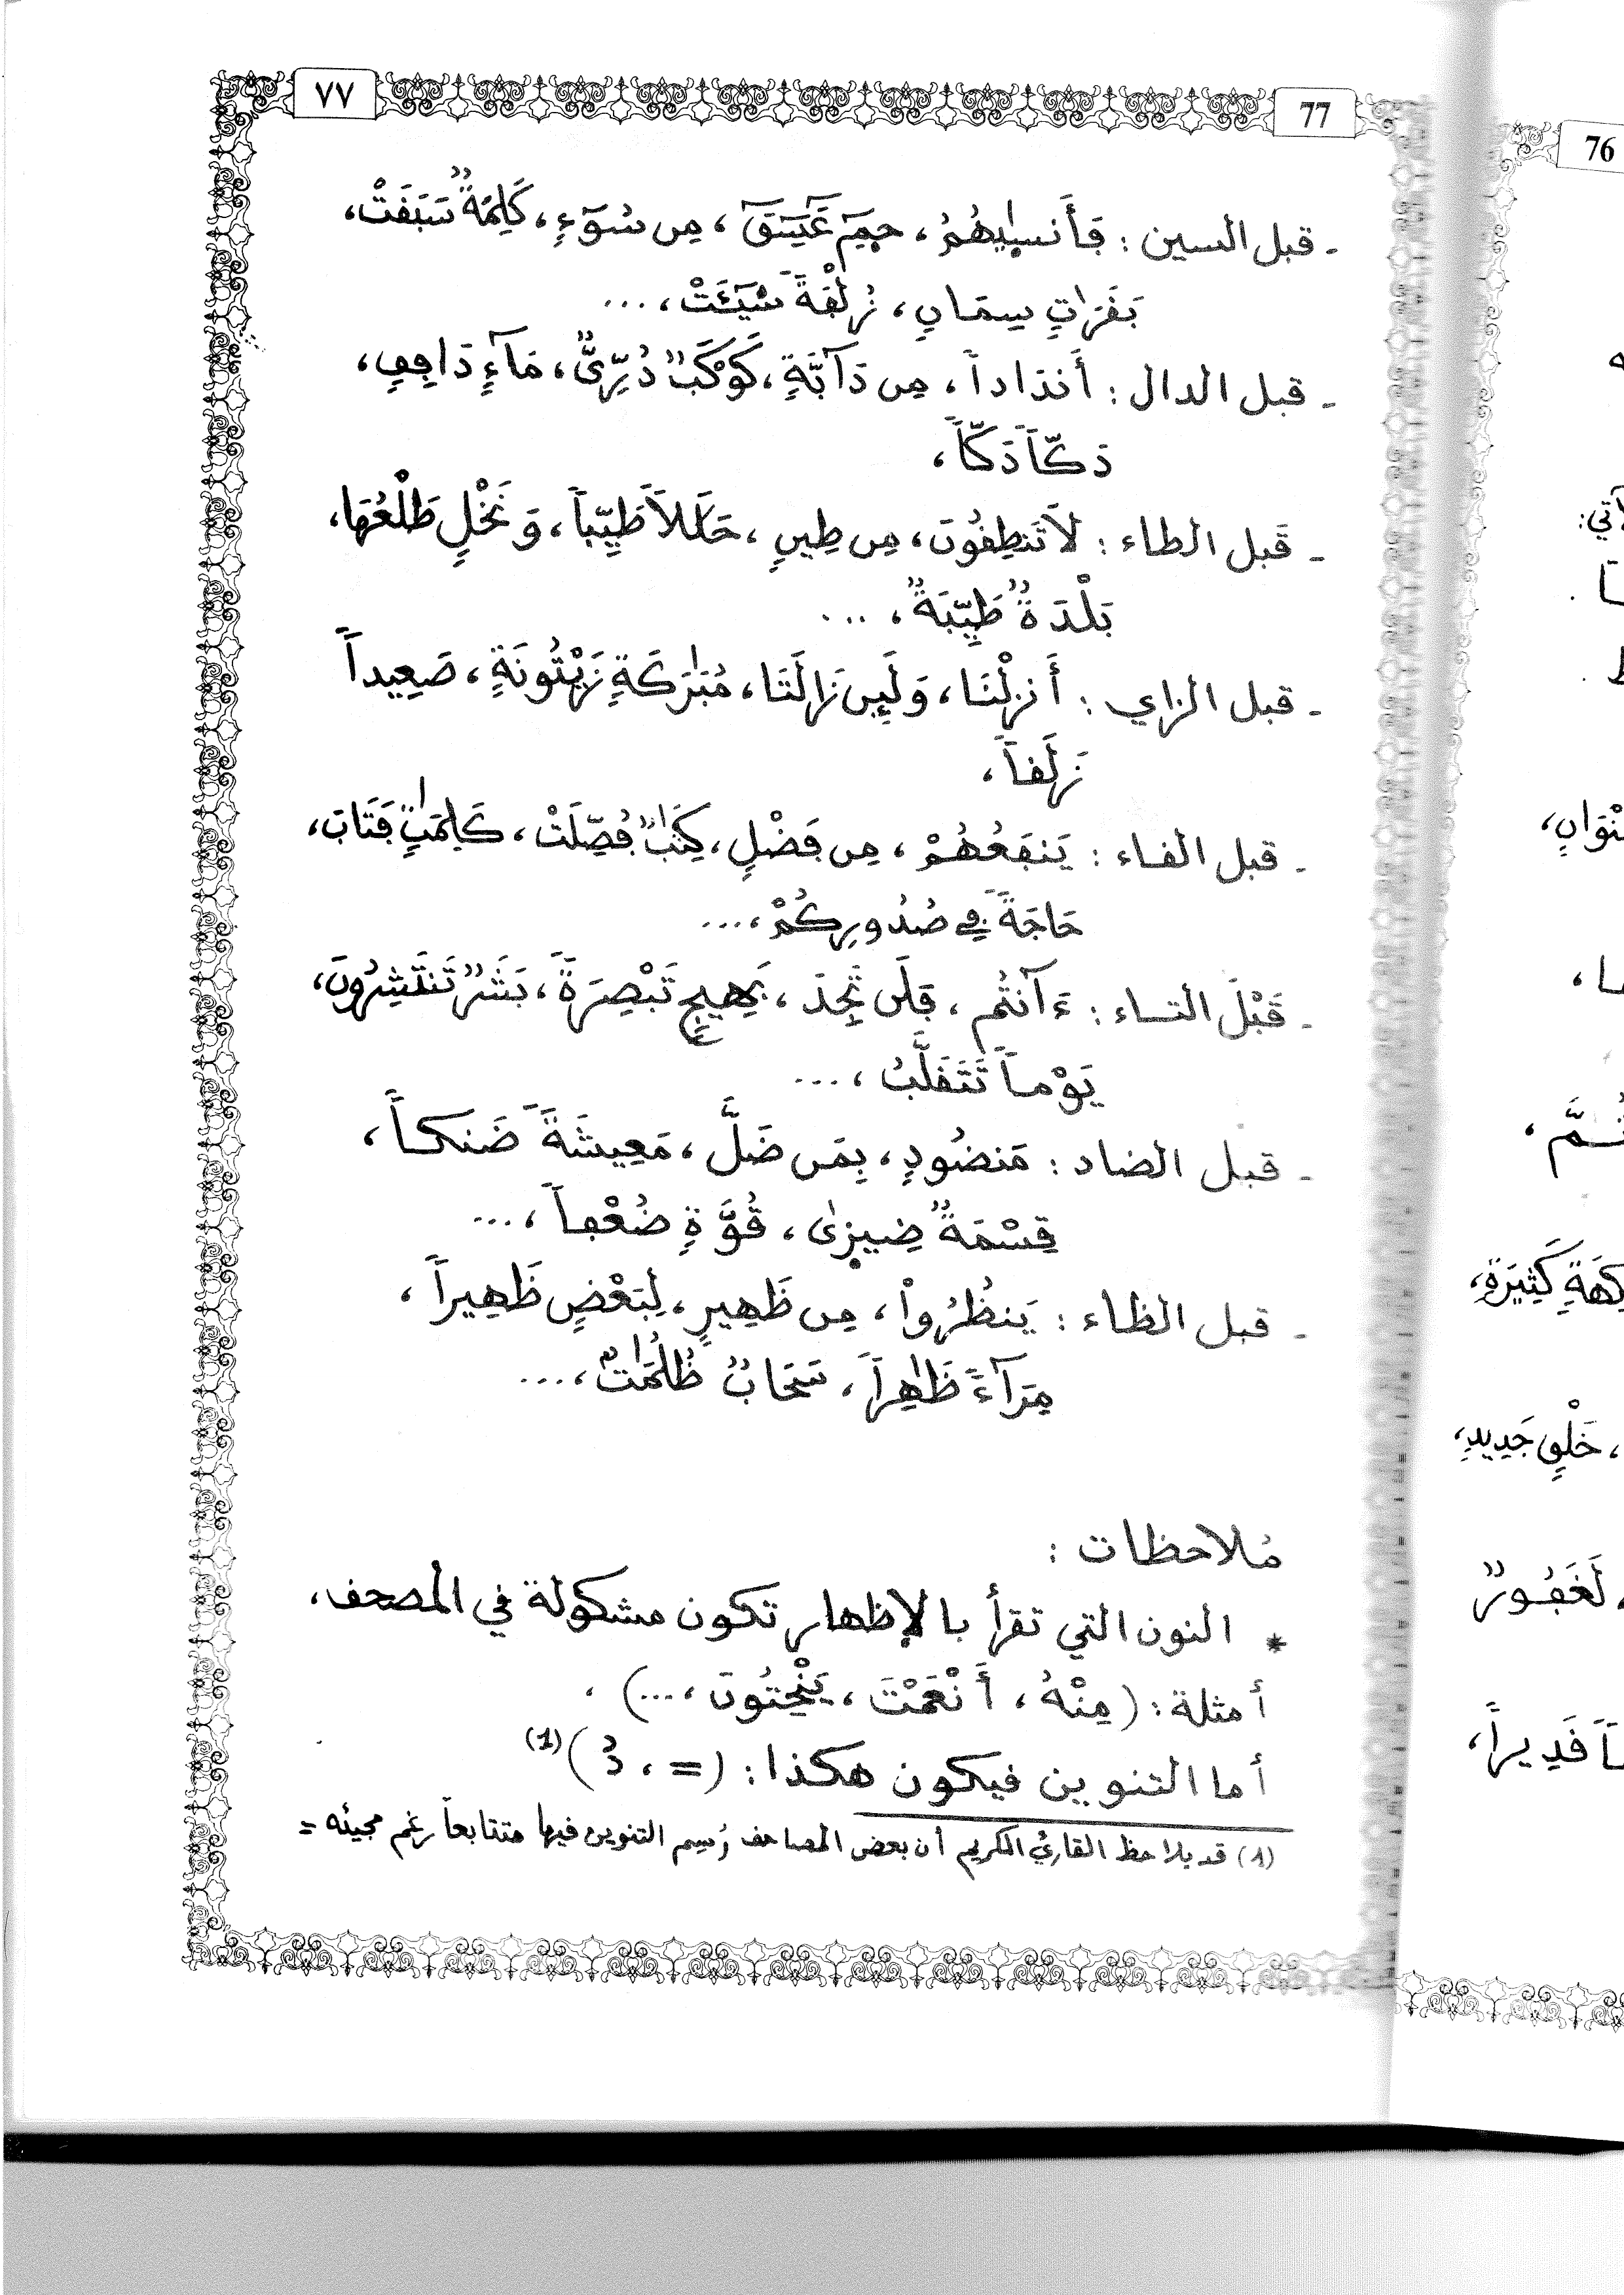 ٧٧
77
- قبل السين : فَأَنسٜيٰهُمُۥ ، حٜمِٓ عَٓسِٓقَٓ ، مِن سُوٓءٍ ، كَلِمَةٌ سَبَقَتْ ،
بَقَرَٰتٍ سِمَانٍ ، زُلْفَةً سِيٓـَٔتْ ، ...
- قبل الدال : أَندَاداً ، مِن دَآبَّةٍ ، كَوْكَبٌ دُرِّيٌّ ، مَآءٍ دَافِقٍ ،
دَكّاً دَكّاً ،
- قَبل الطاء : لَا تَنطِقُونَ ، مِن طِينٍ ، حَلَٰلًا طَيِّباً ، وَنَخْلٍ طَلْعُهَا ،
بَلْدَةٌ طَيِّبَةٌ ، ...
- قبل الزاي : أَنزَلْنَا ، وَلَئِن زَالَتَا ، مُبَٰرَكَةٍ زَيْتُونَةٍ ، صَعِيداً
زَلَقاً ،
- قبل الفاء : يَنفَعُهُمْ ، مِن فَضْلٍ ، كِتَٰبٌ فُصِّلَتْ ، كَلِمَٰتٍ فَتَابَ ،
حَاجَةً فِي صُدُورِكُمْ ، ...
- قَبْلَ التاء : ءَآنتُم ، فَلَن تَجِدَ ، بَهِيجٍ تَبْصِرَةً ، بَشَرٌ تَنتَشِرُونَ ،
يَوْماً تَتَقَلَّبُ ، ...
- قبل الضاد : مَنضُودٍ ، بِمَن ضَلَّ ، مَعِيشَةً ضَنكاً ،
قِسْمَةٌ ضِيزٜىٰ ، قُوَّةٍ ضُعْفاً ، ...
- قبل الظاء : يَنظُرُواْ ، مِن ظَهِيرٍ ، لِبَعْضٍ ظَهِيراً ،
مِرَآءً ظَٰهِراً ، سَحَابٌ ظُلُمَٰتٌ ، ...
مُلاحظات :
* النون التي تقرأ بالإظهار تكون مشكولة في المصحف ،
أمثلة : (مِنْهُ ، أَنْعَمْتَ ، يَنْحِتُونَ ، ...) ،
أما التنوين فيكون هكذا : ( = ، ٌ ) (1)
(1) قد يلاحظ القارئ الكريم أن بعض المصاحف رُسِم التنوين فيها متتابعاً رغم مجيئه =
76